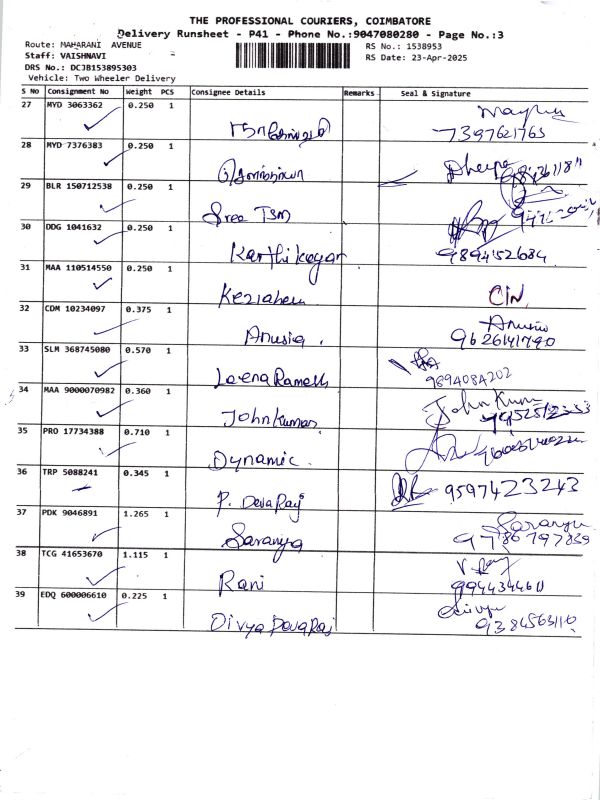 THE PROFESSIONAL COURIERS, COIMBATORE
Delivery Runsheet - P41 - Phone No.:9047080280 - Page No.:3
Route: MAHARANI AVENUE
RS No.: 1538953
Staff: VAISHNAVI
RS Date: 23-Apr-2025
DRS No.: DCJB153895303
Vehicle: Two Wheeler Delivery
S No Consignment No Weight PCS Consignee Details Remarks Seal & Signature
27 MYD 3063362 0.250 1
7397621763
28 MYD 7376383 0.250 1
Dheepa
29 BLR 150712538 0.250 1
Sree TSM
30 DDG 1041632 0.250 1
Karthikeyan 9894152684
31 MAA 110514550 0.250 1
CIN
32 CDM 10234097 0.375 1
Anusia
Anusia. 9626141790
33 SLM 368745080 0.570 1
Leena Ramesh 9894084202
34 MAA 9000070982 0.360 1
John Kumar
John Kumar
35 PRO 17734388 0.710 1
Dynamic.
36 TRP 5088241 0.345 1
P. Deva Raj 9597423243
37 PDK 9046891 1.265 1
Saranya
Saranya 9786797839
38 TCG 41653670 1.115 1
Rani 9944344611
39 EDQ 600006610 0.225 1
Divya
Divya Deva Raj 9384563110